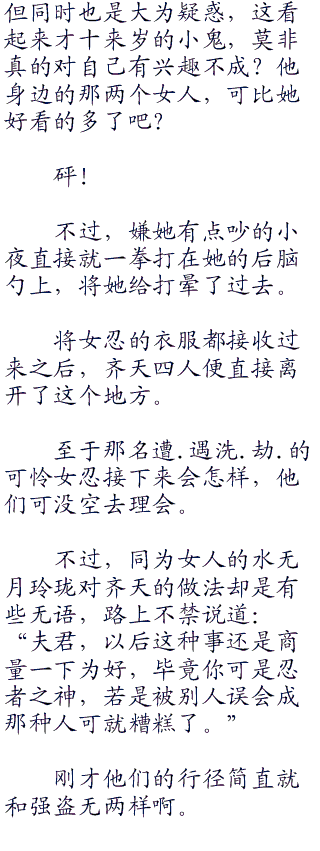 但同时也是大为疑惑，这看
起来才十来岁的小鬼，莫非
真的对自己有兴趣不成？他
身边的那两个女人，可比她
好看的多了吧？
砰！
不过，嫌她有点吵的小
夜直接就一拳打在她的后脑
勺上，将她给打晕了过去。
将女忍的衣服都接收过
来之后，齐天四人便直接离
开了这个地方。
至于那名遭.遇洗.劫.的
可怜女忍接下来会怎样，他
们可没空去理会。
不过，同为女人的水无
月玲珑对齐天的做法却是有
些无语，路上不禁说道：
“夫君，以后这种事还是商
量一下为好，毕竟你可是忍
者之神，若是被别人误会成
那种人可就糟糕了。”
刚才他们的行径简直就
和强盗无两样啊。